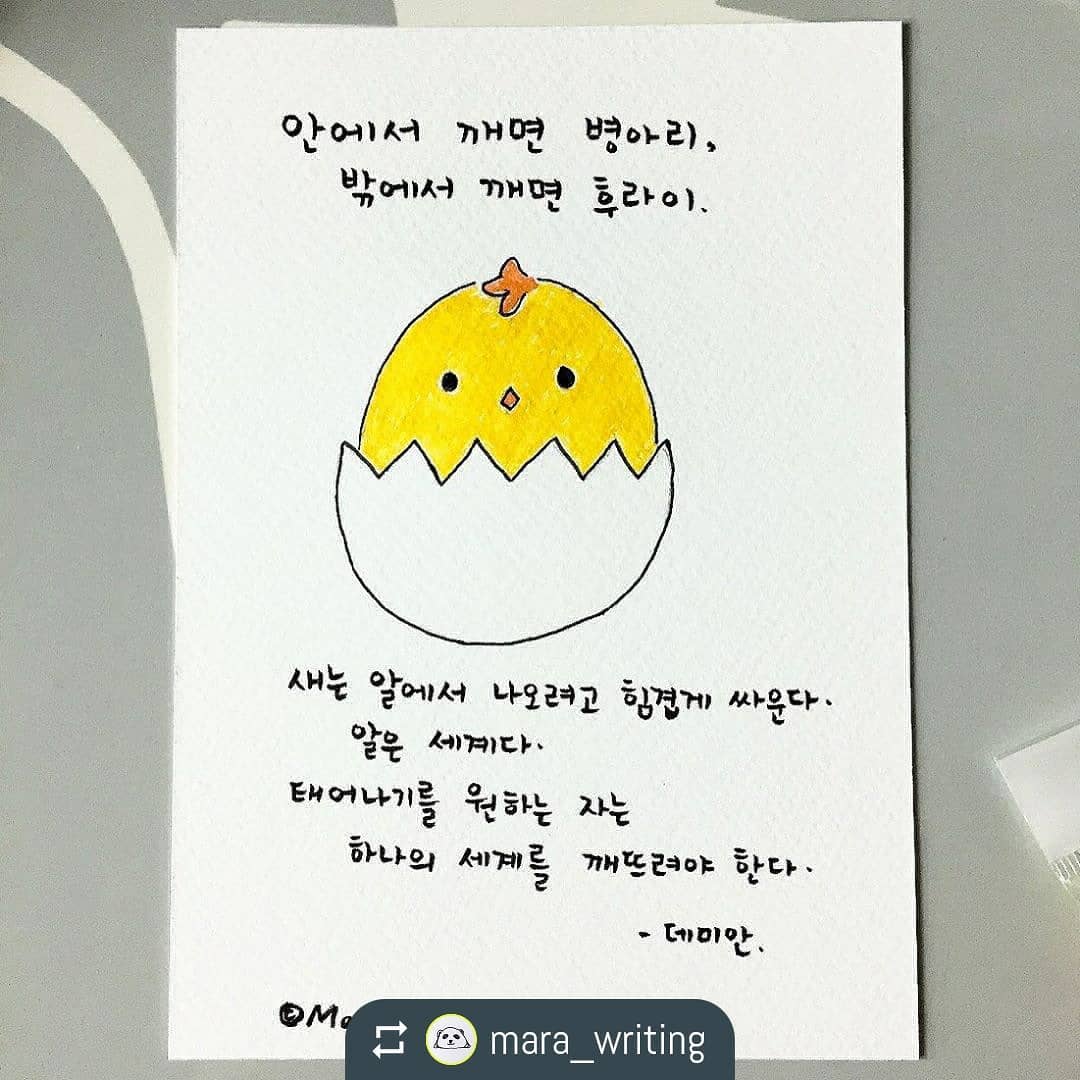 안에서 깨면 병아리,
밖에서 깨면 후라이.
새는 알에서 나오려고 힘겹게 싸운다.
알은 세계다.
태어나기를 원하는 자는
하나의 세계를 깨뜨려야 한다.
- 데미안.
mara_writing